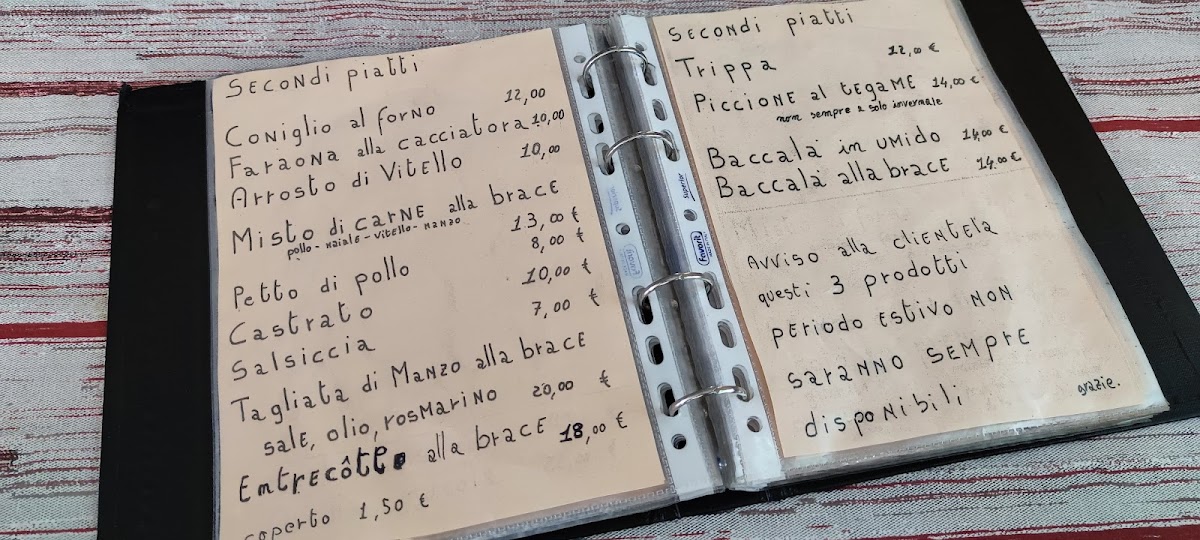 SECONDI PIATTI
CONIGLIO al FORNO 12,00
FARAONA alla CACCIATORA 10,00
ARROSTO di VITELLO 10,00
MISTO di CARNE alla bRACE
pollo - maiale - vitello - manzo 13,00 €
PETTO di pollo 8,00 €
CASTRATO 10,00 €
SALSICCIA 7,00 €
TAGLIATA di MANZO alla bRACE
SALE, OLIO, ROSMARINO 20,00 €
ENTRECÔTE alla bRACE 18,00 €
COPERTO 1,50 €
SECONDI PIATTI
TRIPPA 12,00 €
PICCIONE al TEGAME 14,00 €
non sempre e solo invernale
BACCALÀ in UMIDO 14,00 €
BACCALÀ alla bRACE 14,00 €
AVVISO alla CLIENTELA
QUESTI 3 PRODOTTI
PERIODO ESTIVO NON
SARANNO SEMPRE
disponibili
grazie.
Favorit
Superior